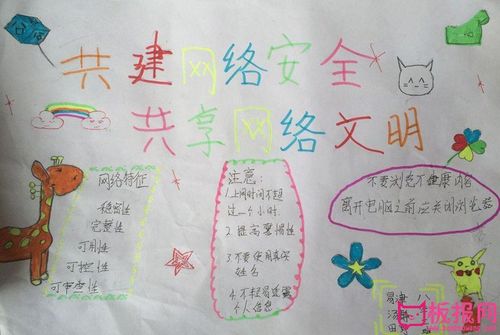 共建网络安全
共享网络文明
网络特征
稳密性
完整性
可用性
可控性
可审查性
注意:
1.上网时间不超
过一个小时
2.提高警惕性
3.不要使用真实
姓名
4.不轻易透露
个人信息
不要浏览不健康内容
离开电脑之前应关闭浏览器
板报网